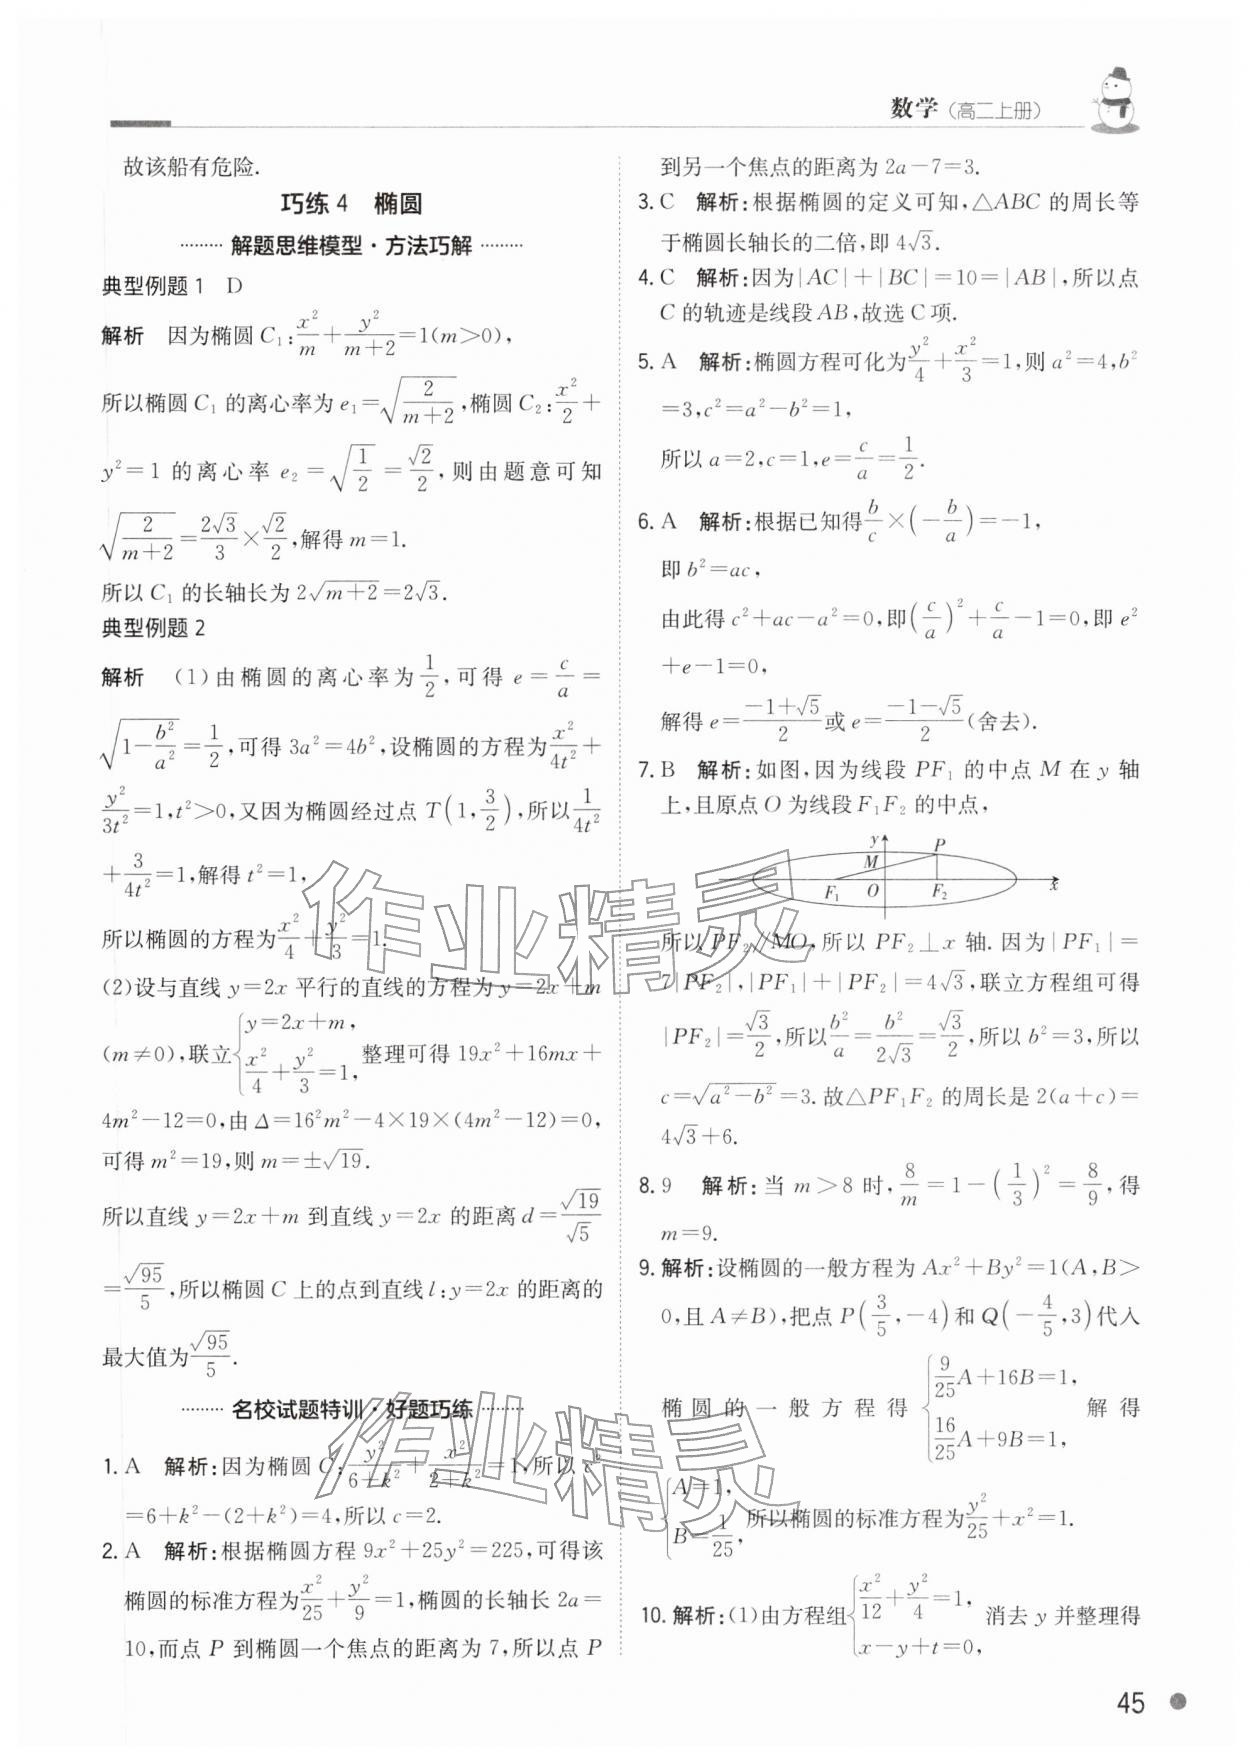 数学（高二上册）
故该船有危险.
巧练 4　椭圆
解题思维模型·方法巧解
典型例题 1　D
解析　因为椭圆 C₁:x²/m+y²/(m+2)=1(m>0),
所以椭圆 C₁ 的离心率为 e₁=√(2/(m+2)),椭圆 C₂:x²/2+
y²=1 的离心率 e₂=√(1/2)=√2/2,则由题意可知
√(2/(m+2))=2√3/3×√2/2,解得 m=1.
所以 C₁ 的长轴长为 2√(m+2)=2√3.
典型例题 2
解析　(1)由椭圆的离心率为1/2,可得 e=c/a=
√(1-b²/a²)=1/2,可得 3a²=4b²,设椭圆的方程为x²/4t²+
y²/3t²=1,t²>0,又因为椭圆经过点 T(1,3/2),所以1/4t²
+3/4t²=1,解得 t²=1,
所以椭圆的方程为x²/4+y²/3=1.
(2)设与直线 y=2x 平行的直线的方程为 y=2x+m
(m≠0),联立{y=2x+m, x²/4+y²/3=1, 整理可得 19x²+16mx+
4m²-12=0,由 Δ=16²m²-4×19×(4m²-12)=0,
可得 m²=19,则 m=±√19.
所以直线 y=2x+m 到直线 y=2x 的距离 d=√19/√5
=√95/5,所以椭圆 C 上的点到直线 l:y=2x 的距离的
最大值为√95/5.
名校试题特训·好题巧练
1. A　解析:因为椭圆 C:y²/(6+k²)+x²/(2+k²)=1,所以 c²
=6+k²-(2+k²)=4,所以 c=2.
2. A　解析:根据椭圆方程 9x²+25y²=225,可得该
椭圆的标准方程为x²/25+y²/9=1,椭圆的长轴长 2a=
10,而点 P 到椭圆一个焦点的距离为 7,所以点 P
到另一个焦点的距离为 2a-7=3.
3. C　解析:根据椭圆的定义可知,△ABC 的周长等
于椭圆长轴长的二倍,即 4√3.
4. C　解析:因为|AC|+|BC|=10=|AB|,所以点
C 的轨迹是线段 AB,故选 C 项.
5. A　解析:椭圆方程可化为y²/4+x²/3=1,则 a²=4,b²
=3,c²=a²-b²=1,
所以 a=2,c=1,e=c/a=1/2.
6. A　解析:根据已知得b/c×(-b/a)=-1,
即 b²=ac,
由此得 c²+ac-a²=0,即(c/a)²+c/a-1=0,即 e²
+e-1=0,
解得 e=(-1+√5)/2或 e=(-1-√5)/2(舍去).
7. B　解析:如图,因为线段 PF₁ 的中点 M 在 y 轴
上,且原点 O 为线段 F₁F₂ 的中点,
y
P
M
F₁ O F₂ x
所以 PF₂∥MO,所以 PF₂⊥x 轴. 因为|PF₁|=
7|PF₂|,|PF₁|+|PF₂|=4√3,联立方程组可得
|PF₂|=√3/2,所以b²/a=b²/2√3=√3/2,所以 b²=3,所以
c=√(a²-b²)=3. 故△PF₁F₂ 的周长是 2(a+c)=
4√3+6.
8. 9　解析:当 m>8 时,8/m=1-(1/3)²=8/9,得
m=9.
9. 解析:设椭圆的一般方程为 Ax²+By²=1(A,B>
0,且 A≠B),把点 P(3/5,-4)和 Q(-4/5,3)代入
椭圆的一般方程得{9/25A+16B=1, 16/25A+9B=1, 解得
{A=1, B=1/25, 所以椭圆的标准方程为y²/25+x²=1.
10. 解析:(1)由方程组{x²/12+y²/4=1, x-y+t=0, 消去 y 并整理得
45
作业精灵
作业精灵